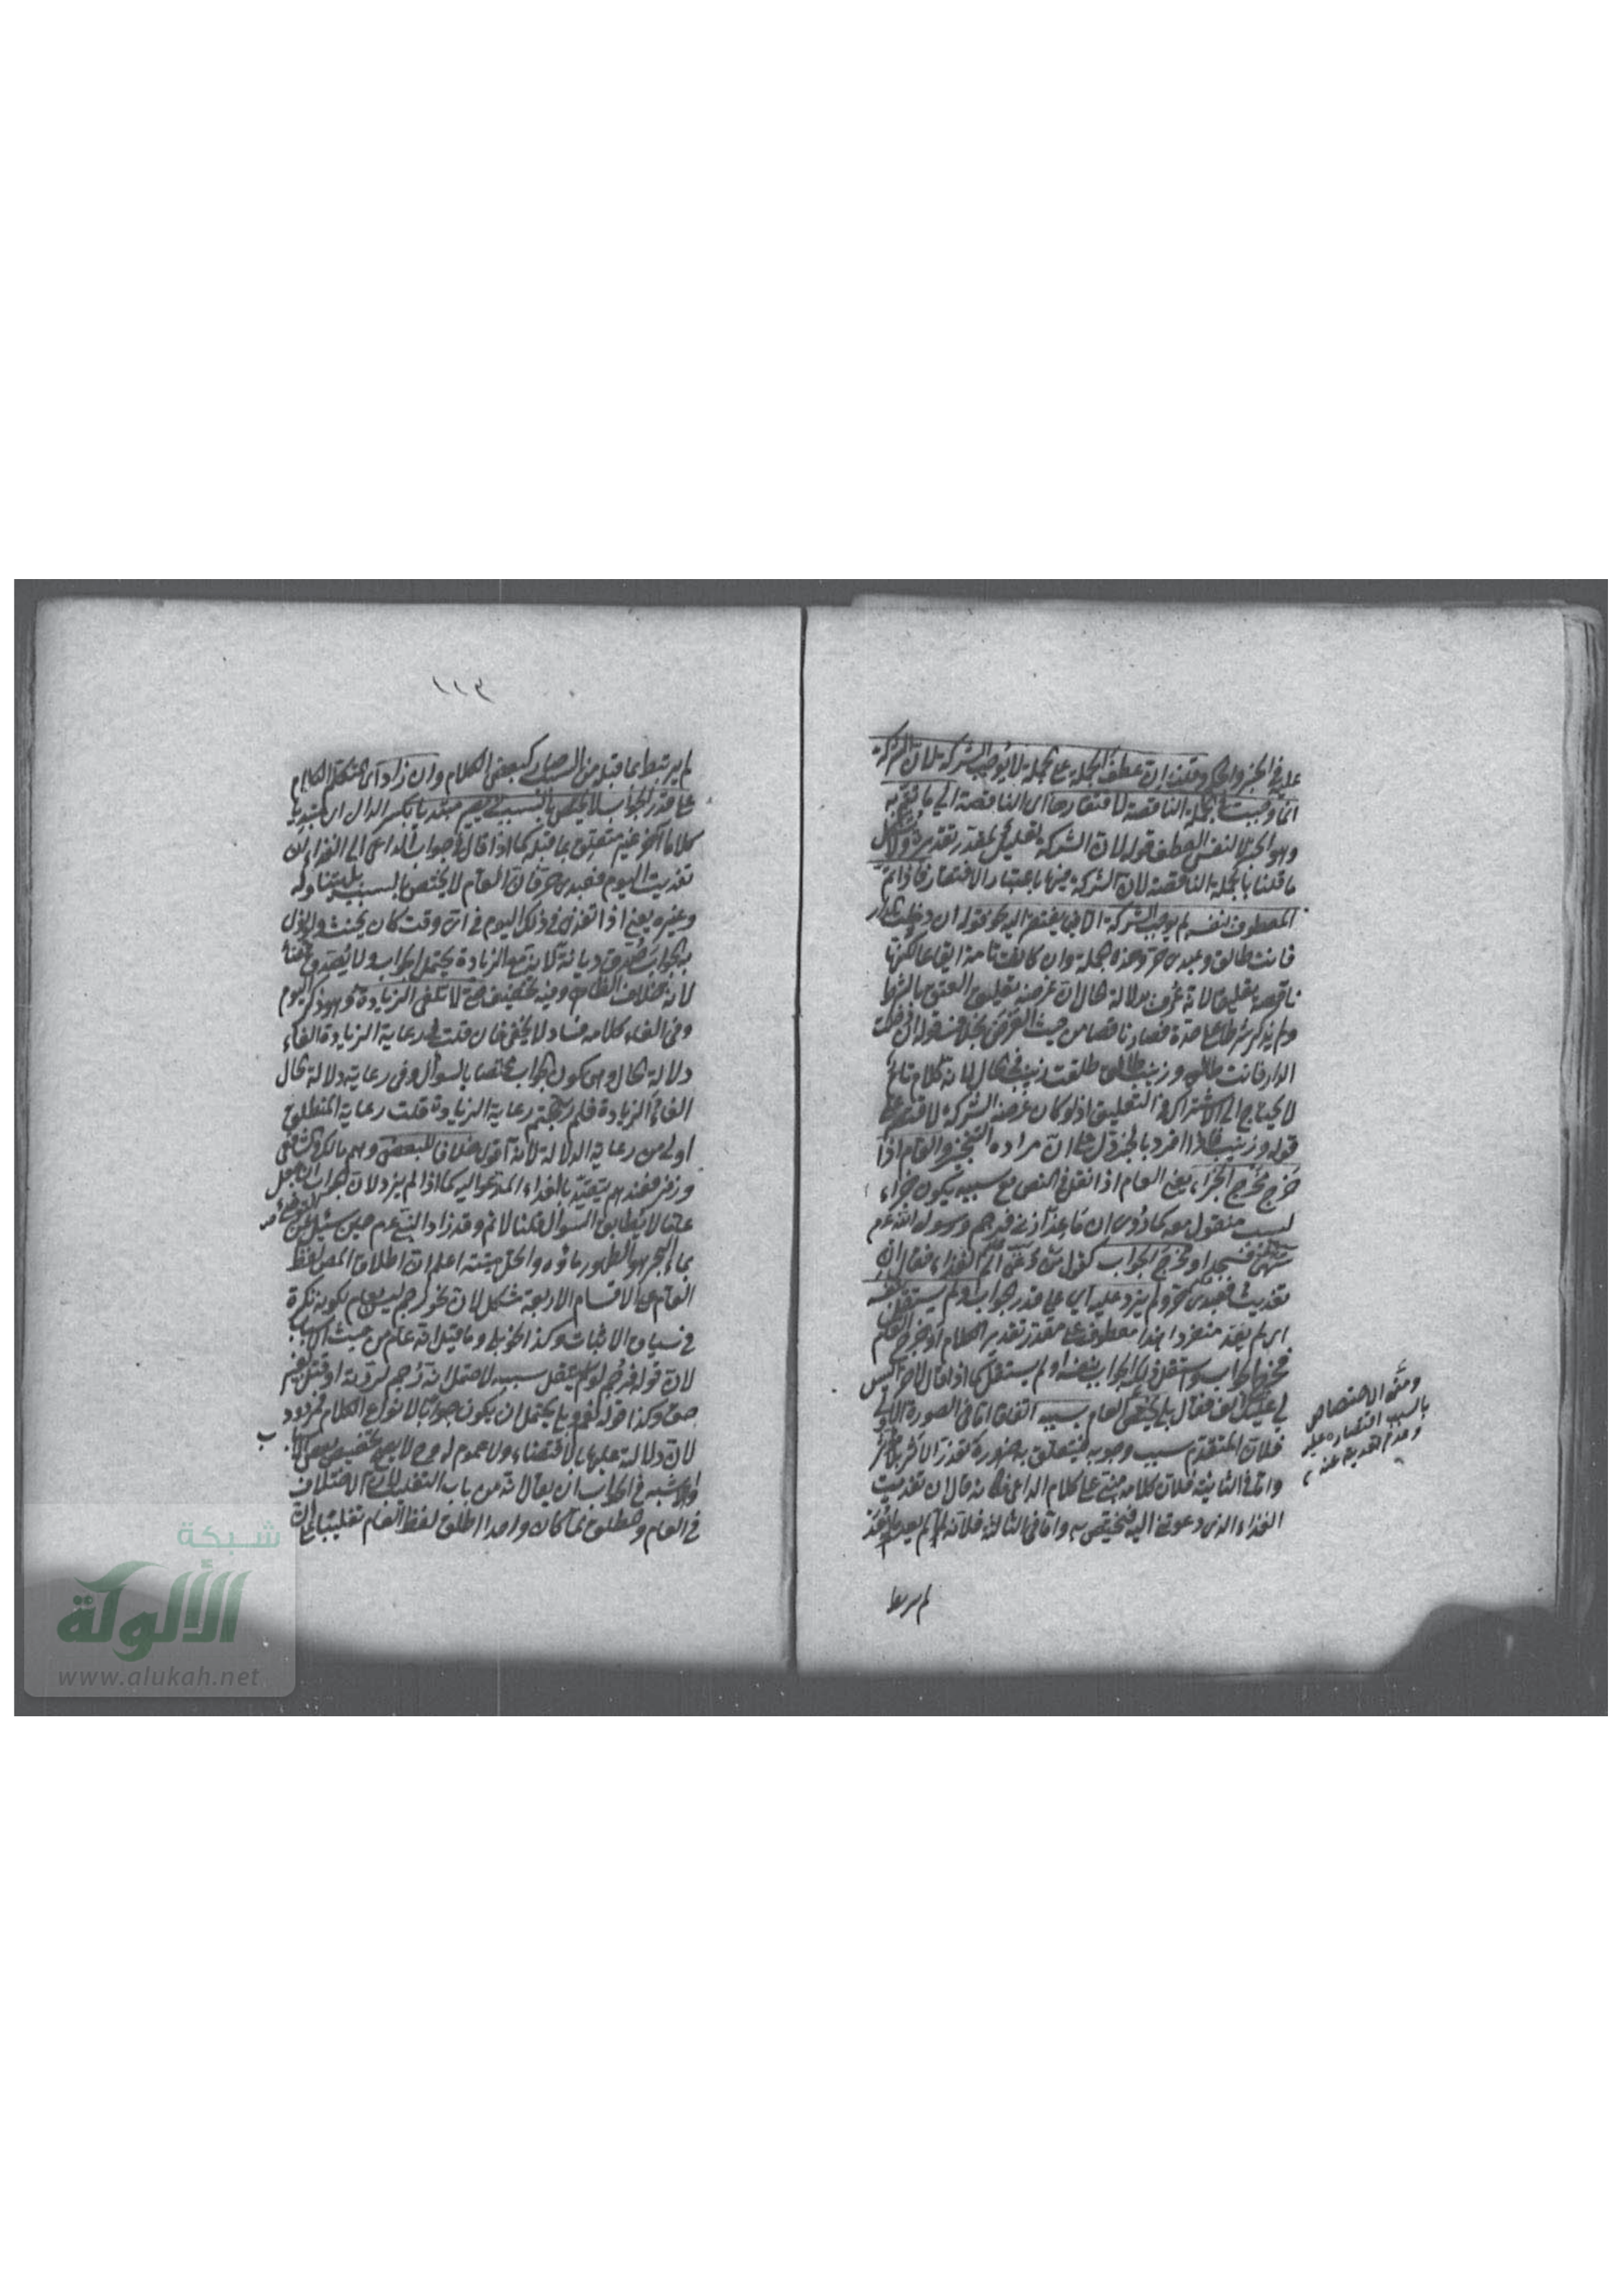 عليه في الخبر والحكم وقلنا ان عطف الجملة على الجملة لا يوجب الشركة لان الشركة
انما وجبت في الجملة الناقصة لافتقارها اى الناقصة الى ما تتم به
وهو الخبر لا لنفس العطف قوله لان الشركة تعليل لمقدر تقديره ولا يشكل
ما قلنا بالجملة الناقصة لان الشركة فيها باعتبار الافتقار فاذا تم
المعطوف بنفسه لم يوجب الشركة الا فيما يفتقر اليه نحو قوله ان دخلت الدار
فانت طالق وعبدى حر وهذه جملة وان كانت تامة ايقاعا لكنها
ناقصة تعليقا لانه عرف بدلالة الحال ان غرضه تعليق العتق بالشرط
ولم يذكر شرطا على حدة فصار ناقصا من حيث الغرض بخلاف قوله ان دخلت
الدار فانت طالق وزينب طالق طلقت زينب في الحال لانه كلام تام
لا يحتاج الى الاشتراك في التعليق اذ لو كان غرضه الشركة لاقتصر على
قوله وزينب فاذا افرد بالخبر دل على ان مراده التنجيز والعام اذا
خرج مخرج الجزاء يعنى العام اذا نقل في النص مع سببه يكون جزاء
لسبب منقول معه كما روى ان ماعزا زنى فرجم ورسول الله عم
سهى فسجد او مخرج الجواب كقول من دعى الى الغداء فقال ان
تغديت فعبدى حر ولم يزد عليه اى على قدر الجواب ولم يستقل بنفسه
اى لم يفد منفردا هذا معطوف على مقدر تقدير الكلام او خرج العام
مخرج الجواب واستقل ذلك الجواب بنفسه او لم يستقل كما اذا قال لآخر اليس
لي عليك الف فقال بلى يختص العام بسببه اتفاقا اما في الصورة الاولى
فلان المتقدم سبب وجوبه فيتعلق به ضرورة تعذر الاثر بلا مؤثر
واما في الثانية فلان كلامه مبنى على كلام الداعى فكانه قال ان تغديت
الغداء الذى دعوتنى اليه فيختص به واما في الثالثة فلانه لما لم يفد
لم يرتبط
ومعنى الاختصاص
بالسبب اقتصاره عليه
وعدم تعديه عنه
١١٢
لم يرتبط بما قبله من السبب صار كبعض الكلام وان زاد اى المتكلم الكلام
على قدر الجواب لا يختص بالسبب ويصير مبتدئا بكسر الدال اى مبتديا
كلاما آخر غير متعلق بما قبله كما اذا قال في جواب الداعى الى الغداء ان
تغديت اليوم فعبدى حر فان العام لا يختص بالسبب بل يتناوله
وغيره يعنى اذا تغدى في ذلك اليوم في اى وقت كان يحنث ولو نوى
به الجواب صدق ديانة لانه مع الزيادة يحتمل الجواب ولا يصدق قضاء
لانه خلاف الظاهر وفيه تخفيف حتى لا تلغى الزيادة وهو ذكر اليوم
وفي الغاء كلامه فساد لا يخفى فان قلت في رعاية الزيادة الغاء
دلالة الحال وهى كون الجواب مختصا بالسوال وفي رعاية دلالة الحال
الغاء الزيادة فلم رجحتم رعاية الزيادة قلت رعاية المنطوق
اولى من رعاية الدلالة لانه اقوى خلافا للبعض وهو مالك والشافعى
وزفر فعندهم يتقيد بالغداء المدعو اليه كما اذا لم يزد لان الجواب ان جعل
عاما لا يطابق السوال قلنا لا ثم وقد زاد النبى عم حين سئل عن التوضؤ
بماء البحر هو الطهور ماؤه والحل ميتته اعلم ان اطلاق المص لفظ
العام على الاقسام الاربعة مشكل لان نحو رجم ليس بعام لكونه نكرة
في سياق الاثبات وكذا نحو بلى وما قيل انه عام من حيث الاسباب
لان قوله فرجم لو لم ينقل سببه لاحتمل انه رجم لردة او قتل بغير
حق وكذا قوله نعم وبلى يحتمل ان يكون جوابا لانواع الكلام فمردود
لان دلالته عليها بالاقتضاء ولا عموم له ولا يصح تخصيص بعض الاسباب
والاشبه في الجواب ان يقال انه من باب التغليب لان الاختلاف
في العام والمطلق لما كان واحدا اطلق لفظ العام تغليبا على ان
شبكة
الألوكة
www.alukah.net